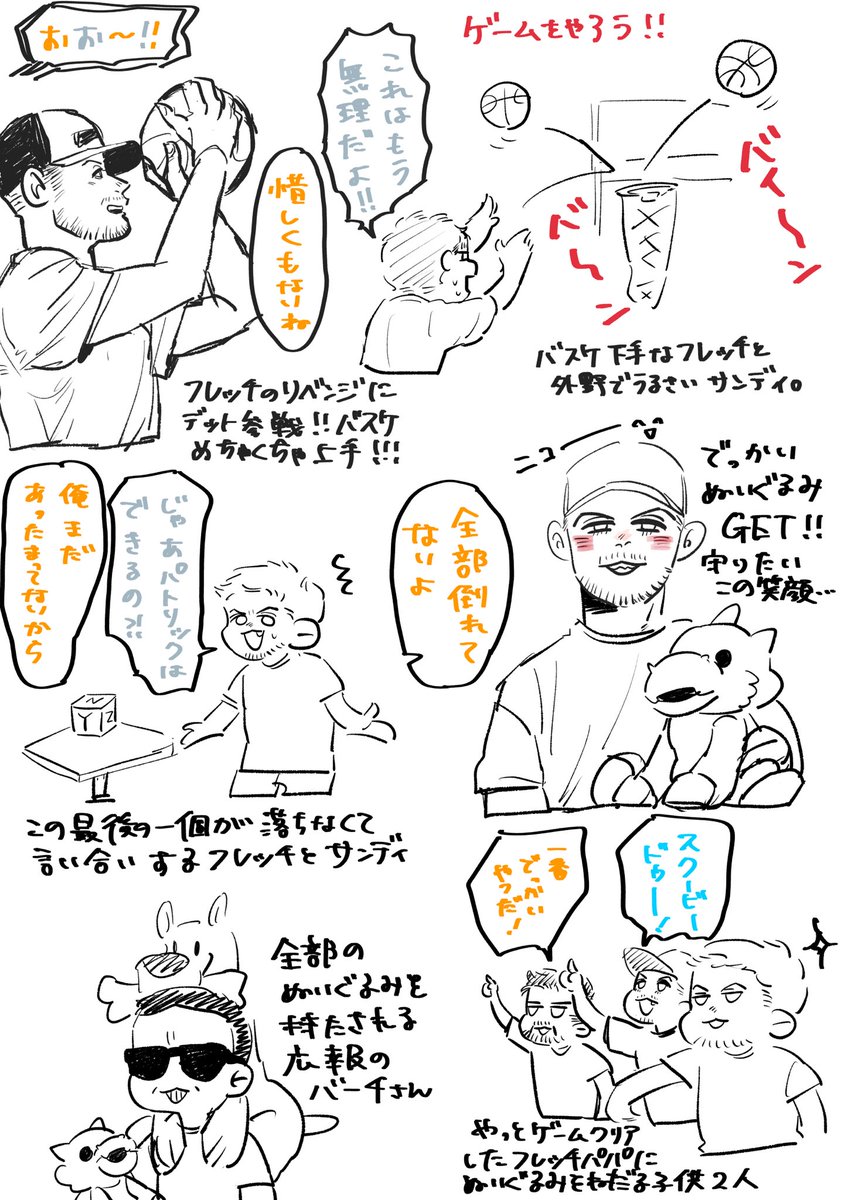 ゲームをやろう!!
バイ〜ン
バ〜ン
これはもう
無理だよ!!
惜しくもないね
バスケ下手なフレッチと
外野でうるさいサンディ。
おお〜!!
フレッチのリベンジに
デット参戦!!バスケ
めちゃくちゃ上手!!!
ニコー
でっかい
ぬいぐるみ
GET!!
守りたい
この笑顔…
全部倒れて
ないよ
じゃあパトリックは
できるの?!
俺まだ
あったまってないから
N
Y
Z
この最後の一個が落ちなくて
言い合いするフレッチとサンディ
スクービー
ドゥー!
一番
でっかい
やつだ!
やっとゲームクリア
したフレッチパパに
ぬいぐるみをねだる子供2人
全部の
ぬいぐるみを
持たされる
広報の
バーチさん